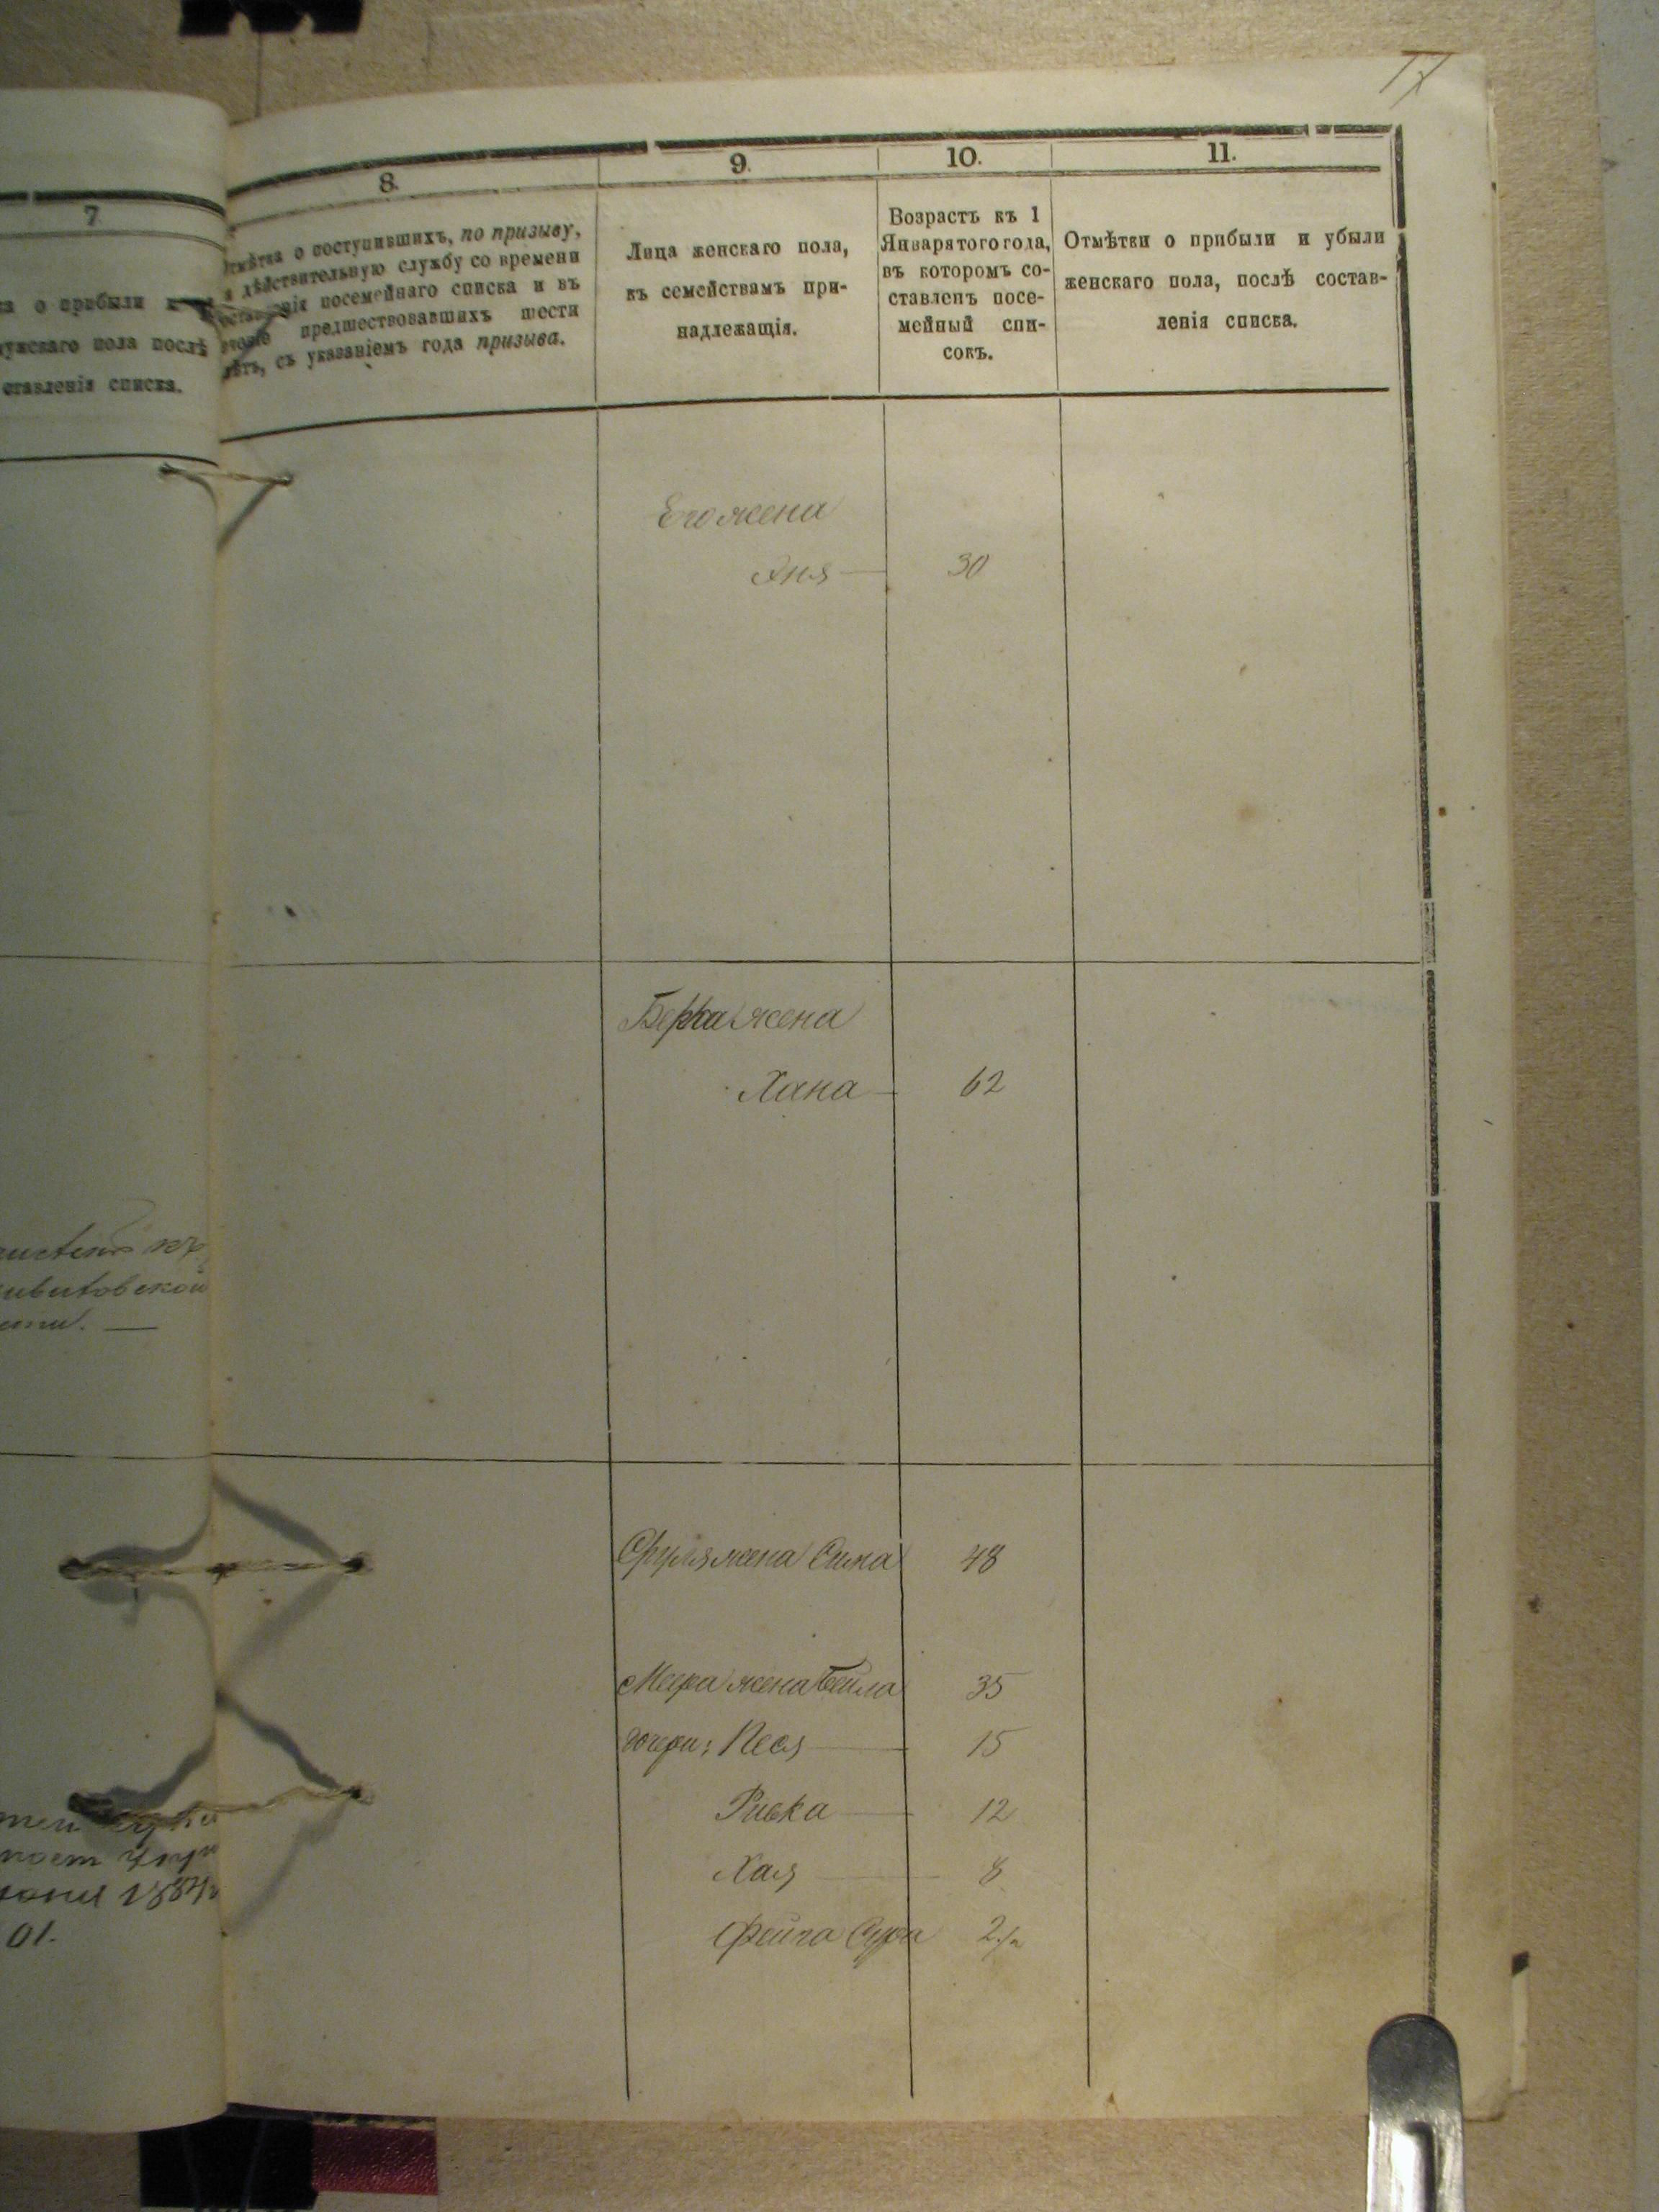 17
7.
о прибыли
мужскаго пола послѣ
ставленія списка.
8.
Отмѣтка о поступившихъ, по призыву,
дѣйствительную службу со времени
посемейнаго списка и въ
предшествовавшихъ шести
лѣтъ, съ указаніемъ года призыва.
9.
Лица женскаго пола,
къ семействамъ при-
надлежащія.
10.
Возрастъ къ 1
Января того года,
въ которомъ со-
ставленъ посе-
мейный спи-
сокъ.
11.
Отмѣтки о прибыли и убыли
женскаго пола, послѣ состав-
ленія списка.
Его жена
Аня 30
Берка жена
Хана 62
къ
Сруля жена Сима 48
Меера жена Бейла 35
дочери: Песя 15
Ривка 12
Хая 8
Фейга Сура 2 1/2
01.